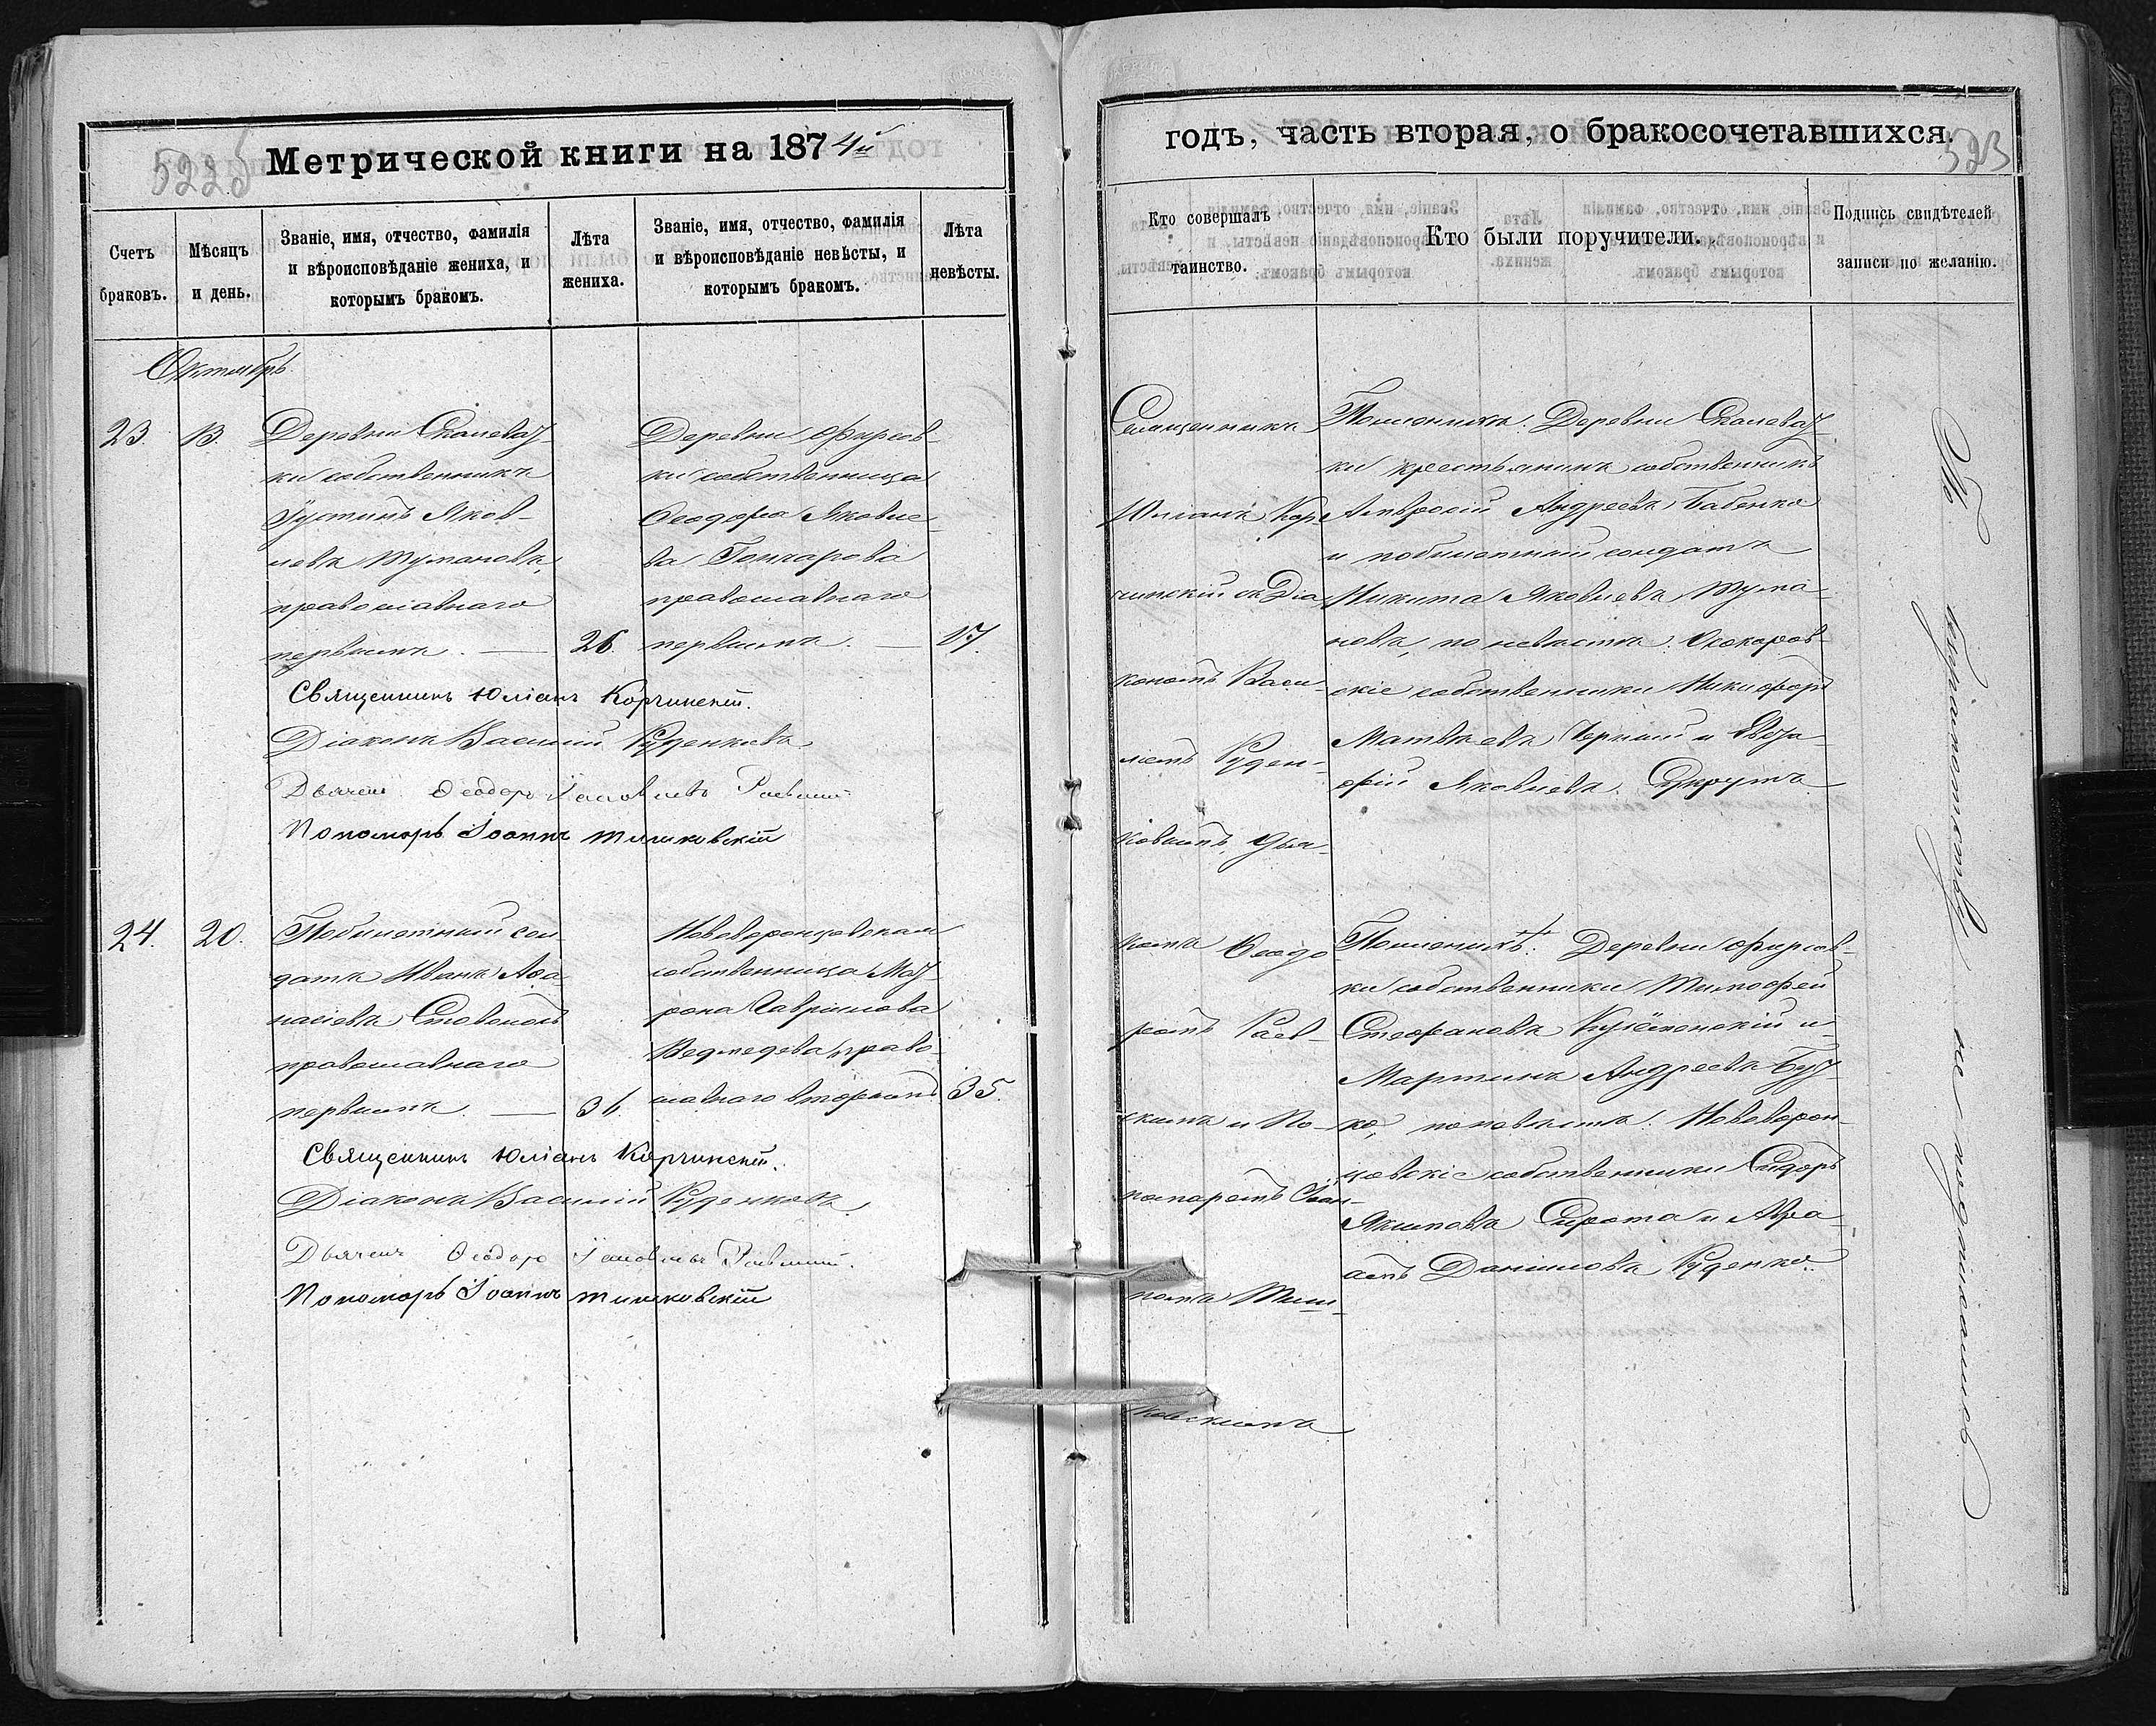 522
Метрической книги на 1874й
Счетъ браковъ.
Мѣсяцъ и день.
Званіе, имя, отчество, фамилія
и вѣроисповѣданіе жениха, и
которымъ бракомъ.
Лѣта
жениха.
Званіе, имя, отчество, фамилія
и вѣроисповѣданіе невѣсты, и
которымъ бракомъ.
Лѣта
невѣсты.
Октябрь.
23.
13.
Деревни Скалевад-
ки собственникъ
Іустинъ Яков-
левъ Тумановъ,
православнаго
первымъ. —
26.
Деревни Фирсов-
ки собственница
Ѳеодора Яковле-
ва Гончарова
православнаго
первымъ. —
17.
Священникъ Юліанъ Корчинскій.
Діаконъ Василій Руденковъ
Дьячекъ Ѳеодоръ Раевскій
Пономарь Іоаннъ Тишковскій
24.
20.
Побилетный сол-
датъ Иванъ Аѳа-
насіевъ
православнаго
первымъ. —
36.
Нововоронцовская
собственница Мат-
рона Гаврилова
Ведмедева право-
славнаго вторымъ
35.
Священникъ Юліанъ Корчинскій.
Діаконъ Василій Руденковъ
Дьячекъ Ѳеодоръ Раевскій.
Пономарь Іоаннъ Тишковскій
годъ, часть вторая, о бракосочетавшихся.
523
Кто совершалъ
таинство.
Кто были поручители.
Подпись свидѣтелей
записи по желанію.
Священникъ
Юліанъ Кор-
чинскій съ Діа-
кономъ Васи-
ліемъ Руден-
ковымъ, Дья-
комъ Ѳеодо-
ромъ Раев-
скимъ и По-
номаремъ Іоан-
номъ Тиш-
ковскимъ
По женихѣ: Деревни Скалевад-
ки крестьянинъ собственникъ
Амвросій Андреевъ Бабенко
и побилетный солдатъ
Никита Яковлевъ Тума-
новъ, по невѣстѣ: Осокоров-
скіе собственники Никифоръ
Матвѣевъ Черный и
Яковлевъ
По женихѣ: Деревни Фирсов-
ки собственники Тимофей
Стефановъ и
Мартинъ Андреевъ
по невѣстѣ: Нововорон-
цовскіе собственники Сидоръ
Якимовъ Сирота и Авра-
амъ Даниловъ Руденко.
По безграмотству не подписались